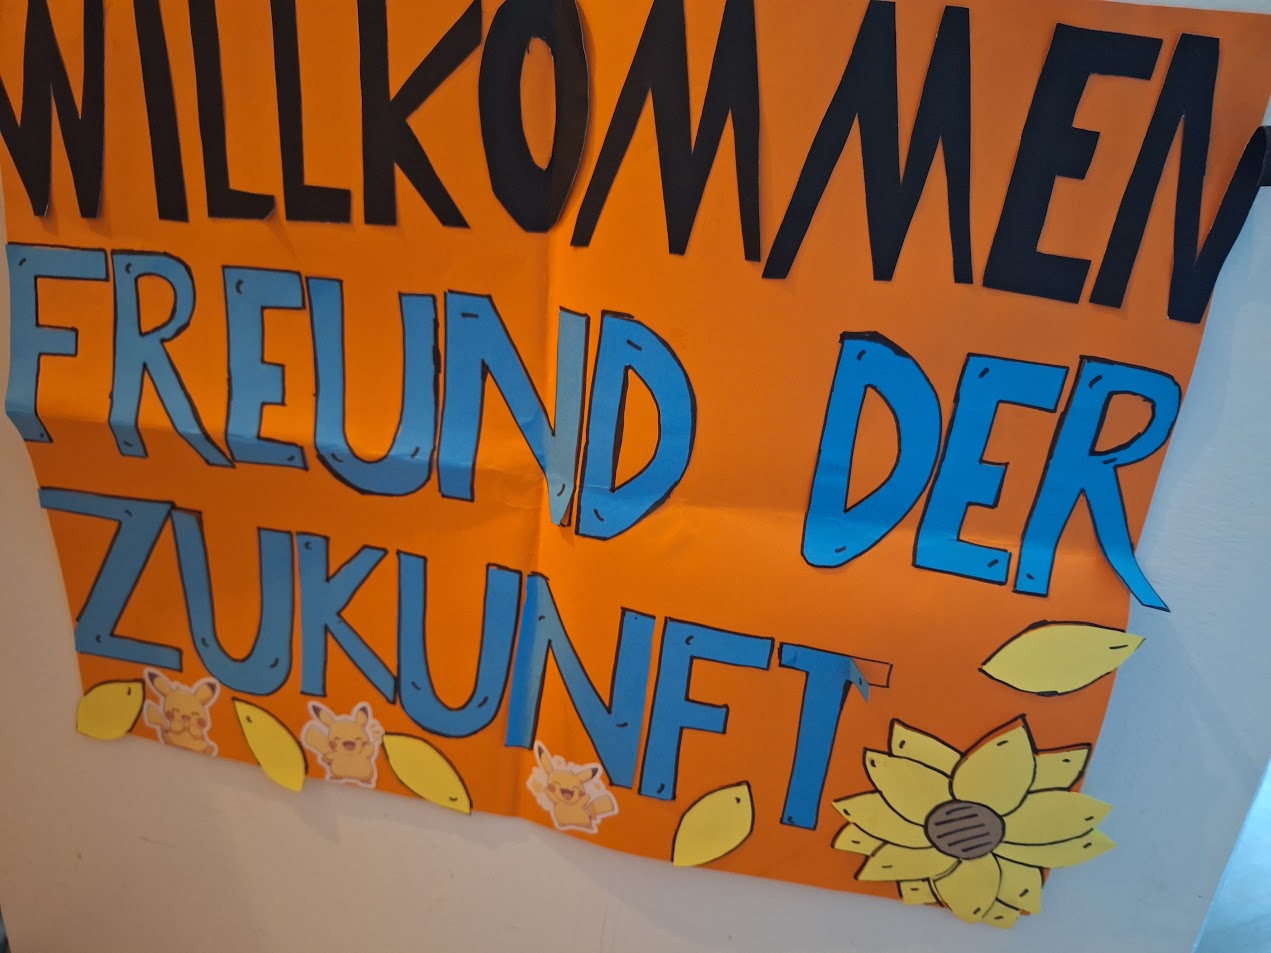 WILLKOMMEN
FREUND DER
ZUKUNFT